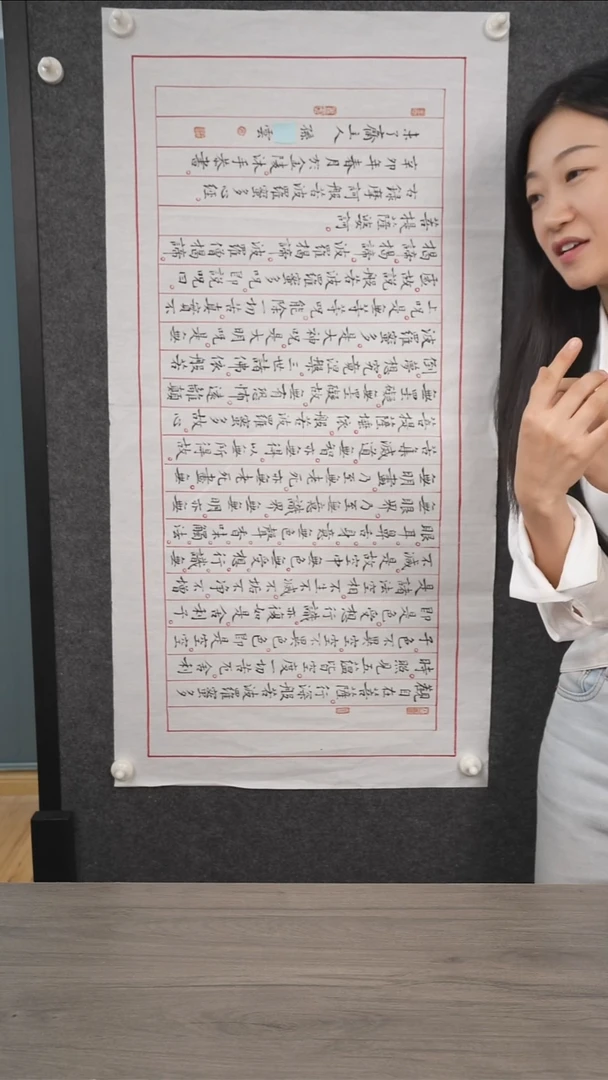 觀自在菩薩行深般若波羅蜜多
時照見五蘊皆空。度一切苦厄。舍利
子。色不異空。空不異色。色即是空。空
即是色。受想行識亦復如是。舍利子。
是諸法空相。不生不滅。不垢不淨。不增
不減。是故空中無色。無受想行識。無
眼耳鼻舌身意。無色聲香味觸法。
無眼界。乃至無意識界。無無明。亦
無明盡。乃至無老死。亦無老死盡。無
苦集滅道。無智亦無得。以無所得故。
菩提薩埵。依般若波羅蜜多故。心
無罣礙。無罣礙故。無有恐怖。遠離顛
倒夢想。究竟涅槃。三世諸佛。依般若
波羅蜜多。是大神呪。是大明呪。是無
上呪。是無等等呪。能除一切苦。真實不
虛。故說般若波羅蜜多呪。即說呪曰。
揭諦揭諦。波羅揭諦。波羅僧揭諦。
菩提薩婆訶。
右錄摩訶般若波羅蜜多心經。
辛卯年春月於金陵沐手恭書。
未了齋主人孫雲